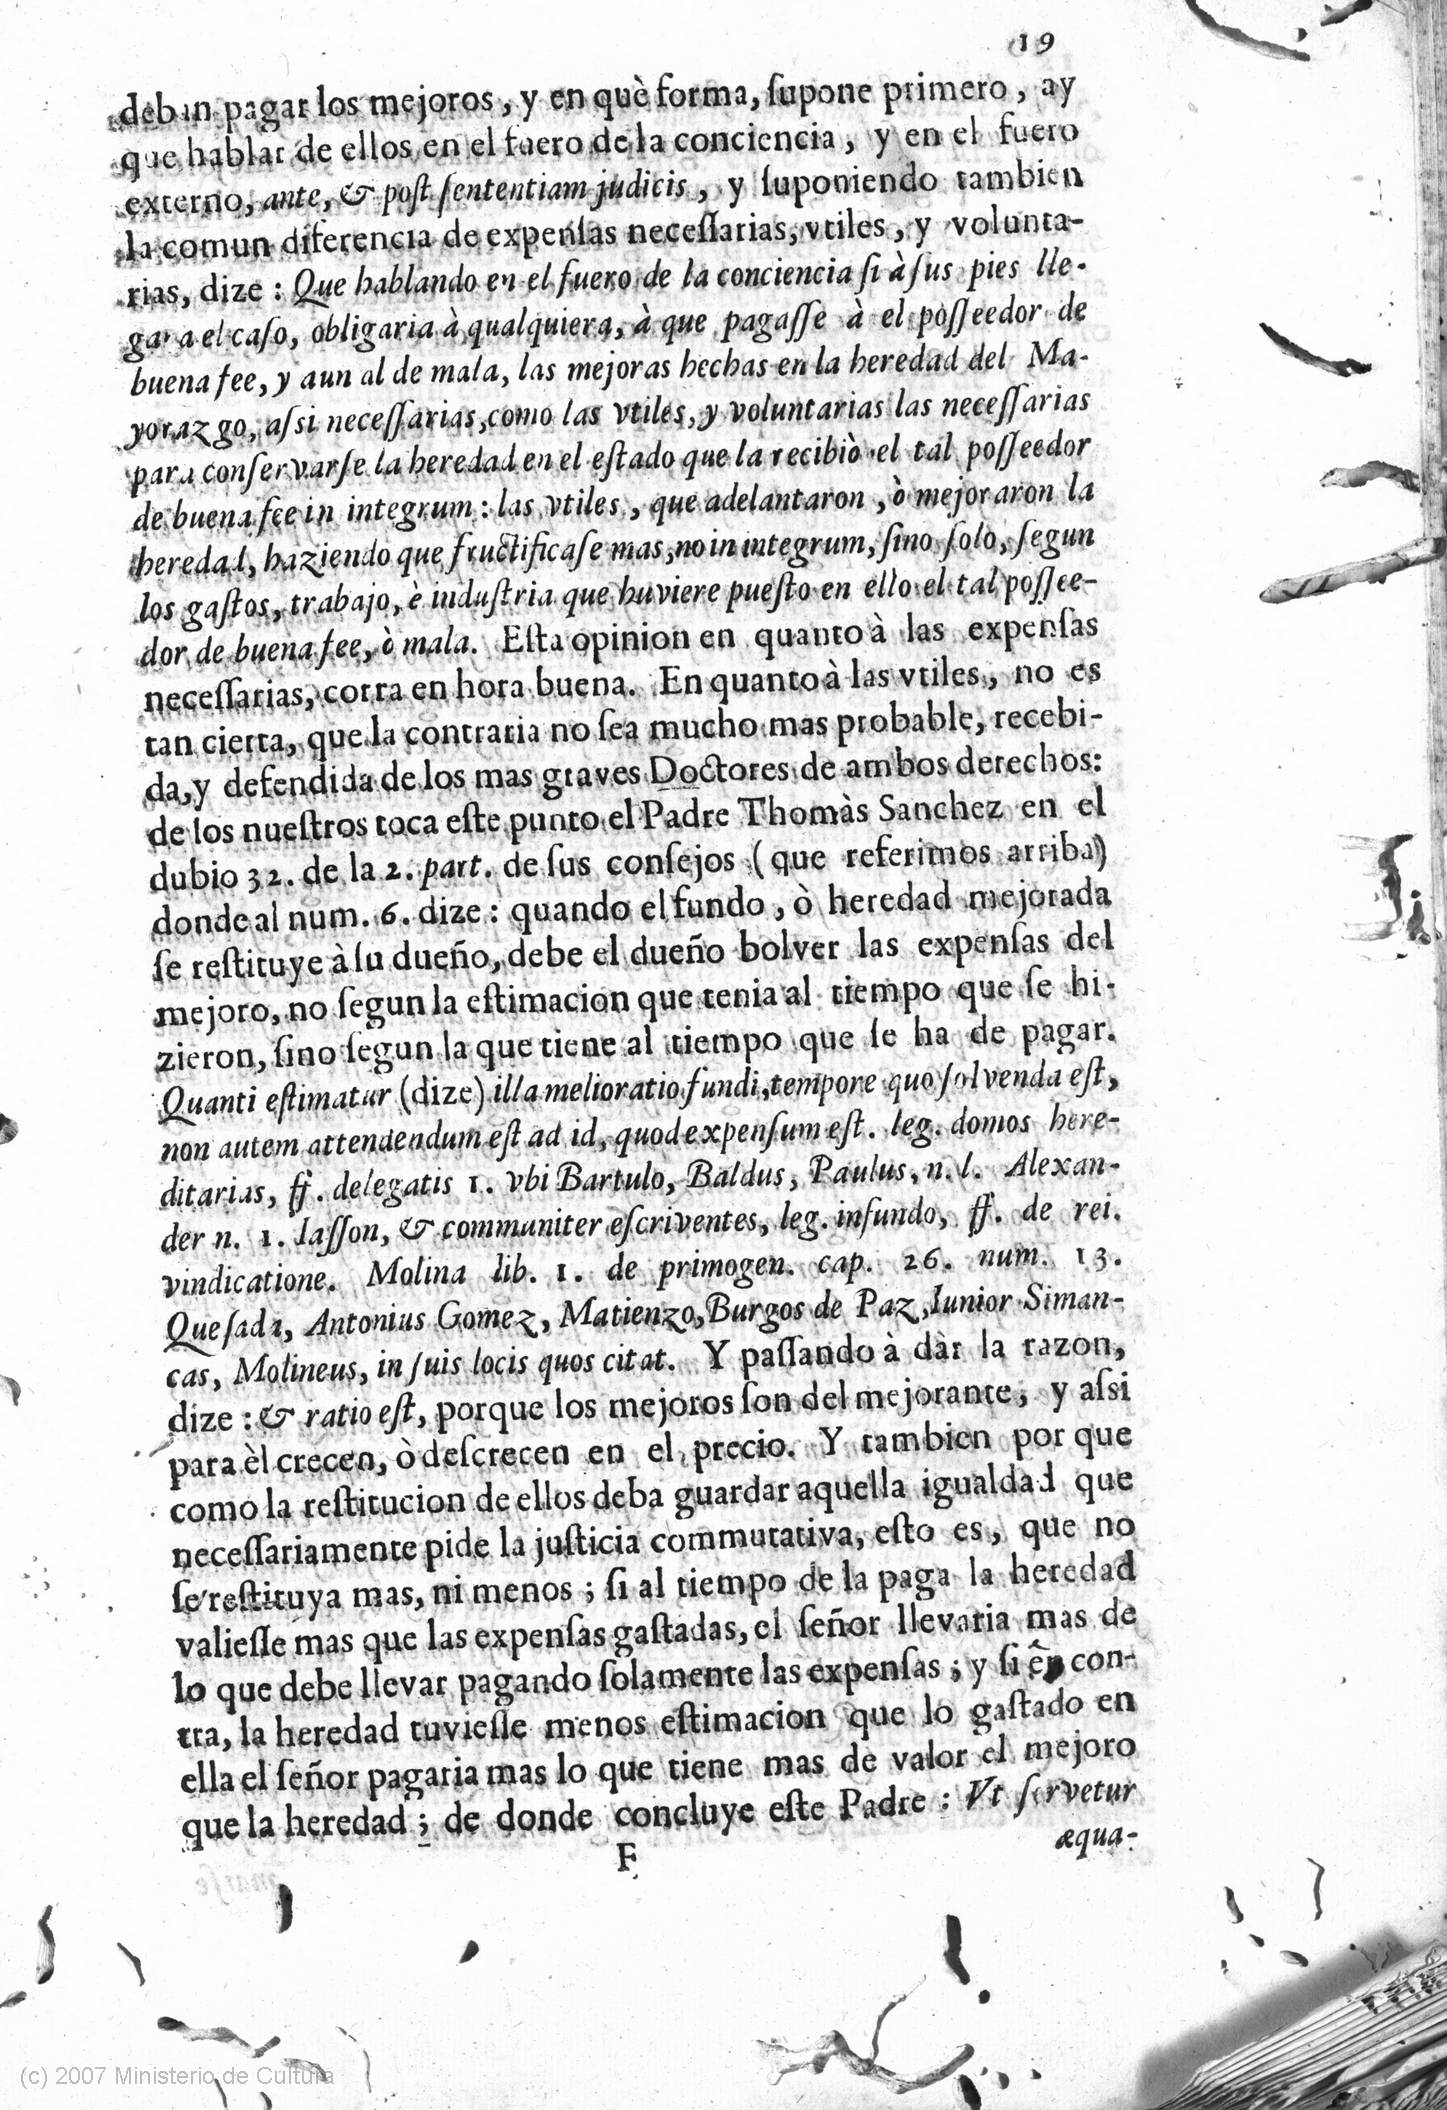 19
deban pagar los mejoros, y en què forma, ſupone primero, ay
que hablar de ellos en el fuero de la conciencia, y en el fuero
externo, ante, & poſt ſententiam judicis, y ſuponiendo tambien
la comun diferencia de expenſas neceſſarias, vtiles, y volunta-
rias, dize : Que hablando en el fuero de la conciencia ſi à ſus pies lle-
gara el caſo, obligaria à qualquiera, à que pagaſſe à el poſſeedor de
buena fee, y aun al de mala, las mejoras hechas en la heredad del Ma-
yorazgo, aſsi neceſſarias, como las vtiles, y voluntarias las neceſſarias
para conſervarſe la heredad en el eſtado que la recibiò el tal poſſeedor
de buena fee in integrum : las vtiles, que adelantaron, ò mejoraron la
heredad, haziendo que fructificaſe mas, no in integrum, ſino ſolo, ſegun
los gaſtos, trabajo, è induſtria que huviere pueſto en ello el tal poſſee-
dor de buena fee, ò mala. Eſta opinion en quanto à las expenſas
neceſſarias, corra en hora buena. En quanto à las vtiles, no es
tan cierta, que la contraria no ſea mucho mas probable, recebi-
da, y defendida de los mas graves Doctores de ambos derechos:
de los nueſtros toca eſte punto el Padre Thomàs Sanchez en el
dubio 32. de la 2. part. de ſus conſejos (que referimos arriba)
donde al num. 6. dize : quando el fundo, ò heredad mejorada
ſe reſtituye à ſu dueño, debe el dueño bolver las expenſas del
mejoro, no ſegun la eſtimacion que tenia al tiempo que ſe hi-
zieron, ſino ſegun la que tiene al tiempo que ſe ha de pagar.
Quanti eſtimatur (dize) illa melioratio fundi, tempore quo ſolvenda eſt,
non autem attendendum eſt ad id, quod expenſum eſt. leg. domos here-
ditarias, ff. de legatis 1. vbi Bartulo, Baldus, Paulus, n. l. Alexan-
der n. 1. Iaſſon, & communiter eſcriventes, leg. in fundo, ff. de rei.
vindicatione. Molina lib. 1. de primogen. cap. 26. num. 13.
Queſada, Antonius Gomez, Matienzo, Burgos de Paz, Iunior Siman-
cas, Molineus, in ſuis locis quos citat. Y paſſando à dàr la razon,
dize : & ratio eſt, porque los mejoros ſon del mejorante, y aſsi
para èl crecen, ò deſcrecen en el precio. Y tambien por que
como la reſtitucion de ellos deba guardar aquella igualdad que
neceſſariamente pide la juſticia commutativa, eſto es, que no
ſe reſtituya mas, ni menos ; ſi al tiempo de la paga la heredad
valieſſe mas que las expenſas gaſtadas, el ſeñor llevaria mas de
lo que debe llevar pagando ſolamente las expenſas ; y ſi en con-
tra, la heredad tuvieſſe menos eſtimacion que lo gaſtado en
ella el ſeñor pagaria mas lo que tiene mas de valor el mejoro
que la heredad ; de donde concluye eſte Padre : Vt ſervetur
F
æqua-
(c) 2007 Ministerio de Cultura